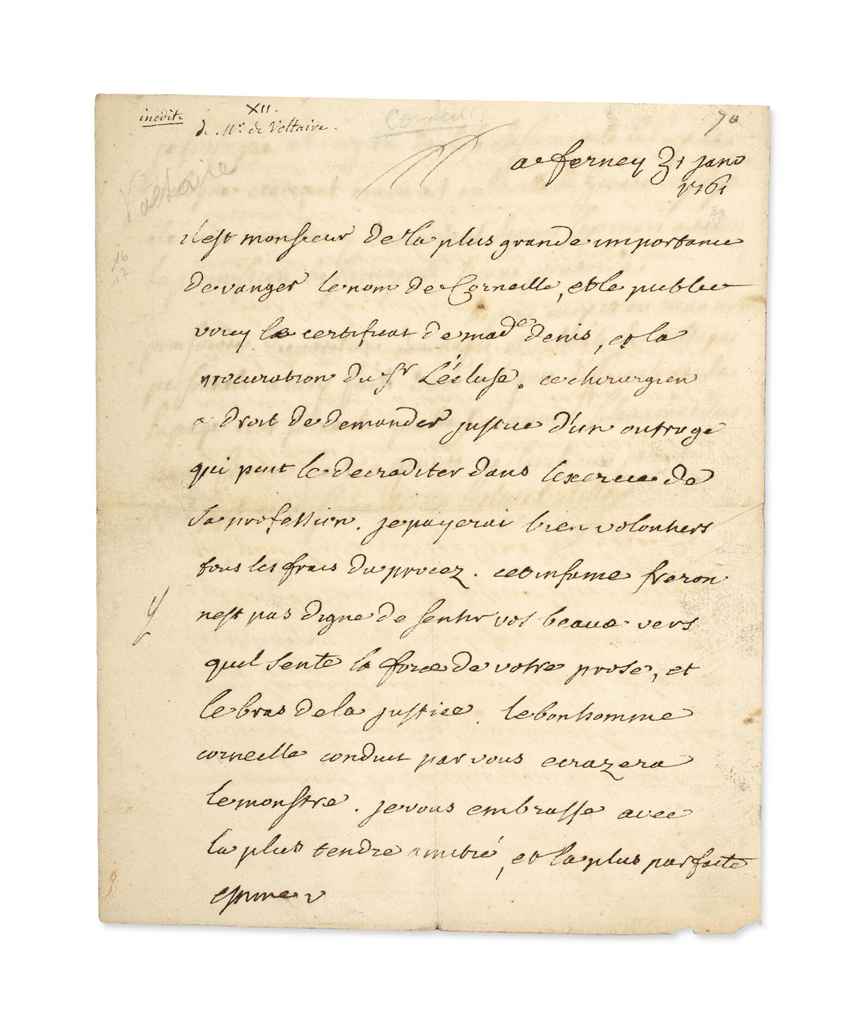 inédite
XII.
de Mr. de Voltaire.
Corneille
70
Voltaire
a ferney 31 janv
1761
il est monsieur de la plus grande importance
de vanger le nom de Corneille, et le public
voicy le certificat de made denis, et la
procuration du sr L'écluse. ce chirurgien
a droit de demander justice d'un outrage
qui peut le decrediter dans lexercice de
sa profession. je payerai bien volontiers
tous les frais du procez. cet infame freron
nest pas digne de sentir vos beaux vers
quil sente la force de votre prose, et
le bras de la justice. le bonhomme
corneille conduit par vous ecrazera
le monstre. je vous embrasse avec
la plus tendre amitié, et la plus parfaite
estime V